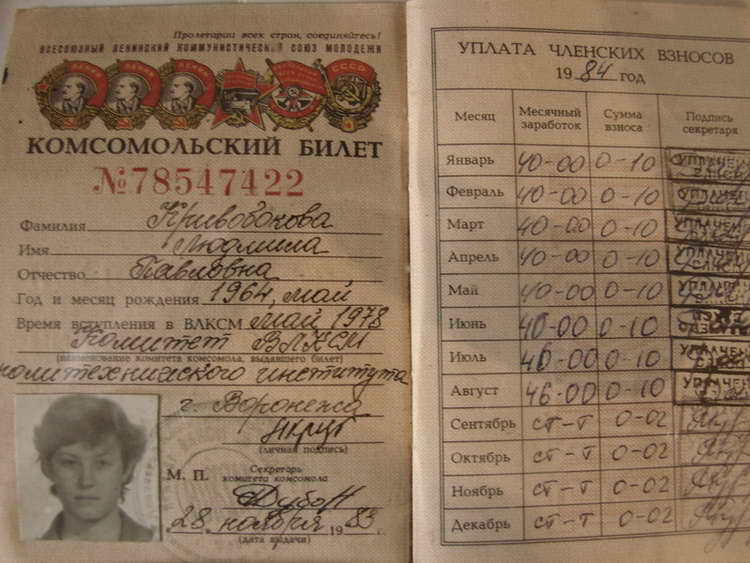 Пролетарии всех стран, соединяйтесь!
ВСЕСОЮЗНЫЙ ЛЕНИНСКИЙ КОММУНИСТИЧЕСКИЙ СОЮЗ МОЛОДЕЖИ
КОМСОМОЛЬСКИЙ БИЛЕТ
№78547422
Фамилия Кривобокова
Имя Людмила
Отчество Павловна
Год и месяц рождения 1964, май
Время вступления в ВЛКСМ май, 1978
Комитет ВЛКСМ
(наименование комитета комсомола, выдавшего билет)
политехнического института
г. Воронежа
(личная подпись)
М. П. Секретарь
комитета комсомола
28 ноября 1983
(дата выдачи)
УПЛАТА ЧЛЕНСКИХ ВЗНОСОВ
1984 год
Месяц Месячный заработок Сумма взноса Подпись секретаря
Январь 40-00 0-10 УПЛАЧЕН
Февраль 40-00 0-10 УПЛАЧЕН
Март 40-00 0-10 УПЛАЧЕН
Апрель 40-00 0-10 УПЛАЧЕН
Май 40-00 0-10 УПЛАЧЕН
Июнь 40-00 0-10
Июль 40-00 0-10 УПЛАЧЕН
Август 46-00 0-10 УПЛАЧЕН
Сентябрь ст-т 0-02
Октябрь ст-т 0-02
Ноябрь ст-т 0-02
Декабрь ст-т 0-02